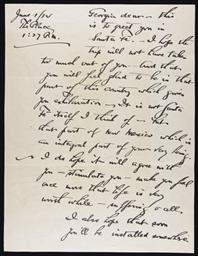 June 1/34
The Place
1:27 P.M.
Georgia dear — This
is to greet you in
Santa Fe. — I hope the
trip will not have taken
too much out of you — And that
you will feel glad to be in that
part of this country which gives
you satisfaction — It is not fair
to itself I think of — this
that part of New Mexico which is
an integral part of your very being.
— I do hope it will agree with
you — stimulate you — make you feel
once more that life is very
worth while — suffering & all.
I also hope that soon
you'll be installed somewhere